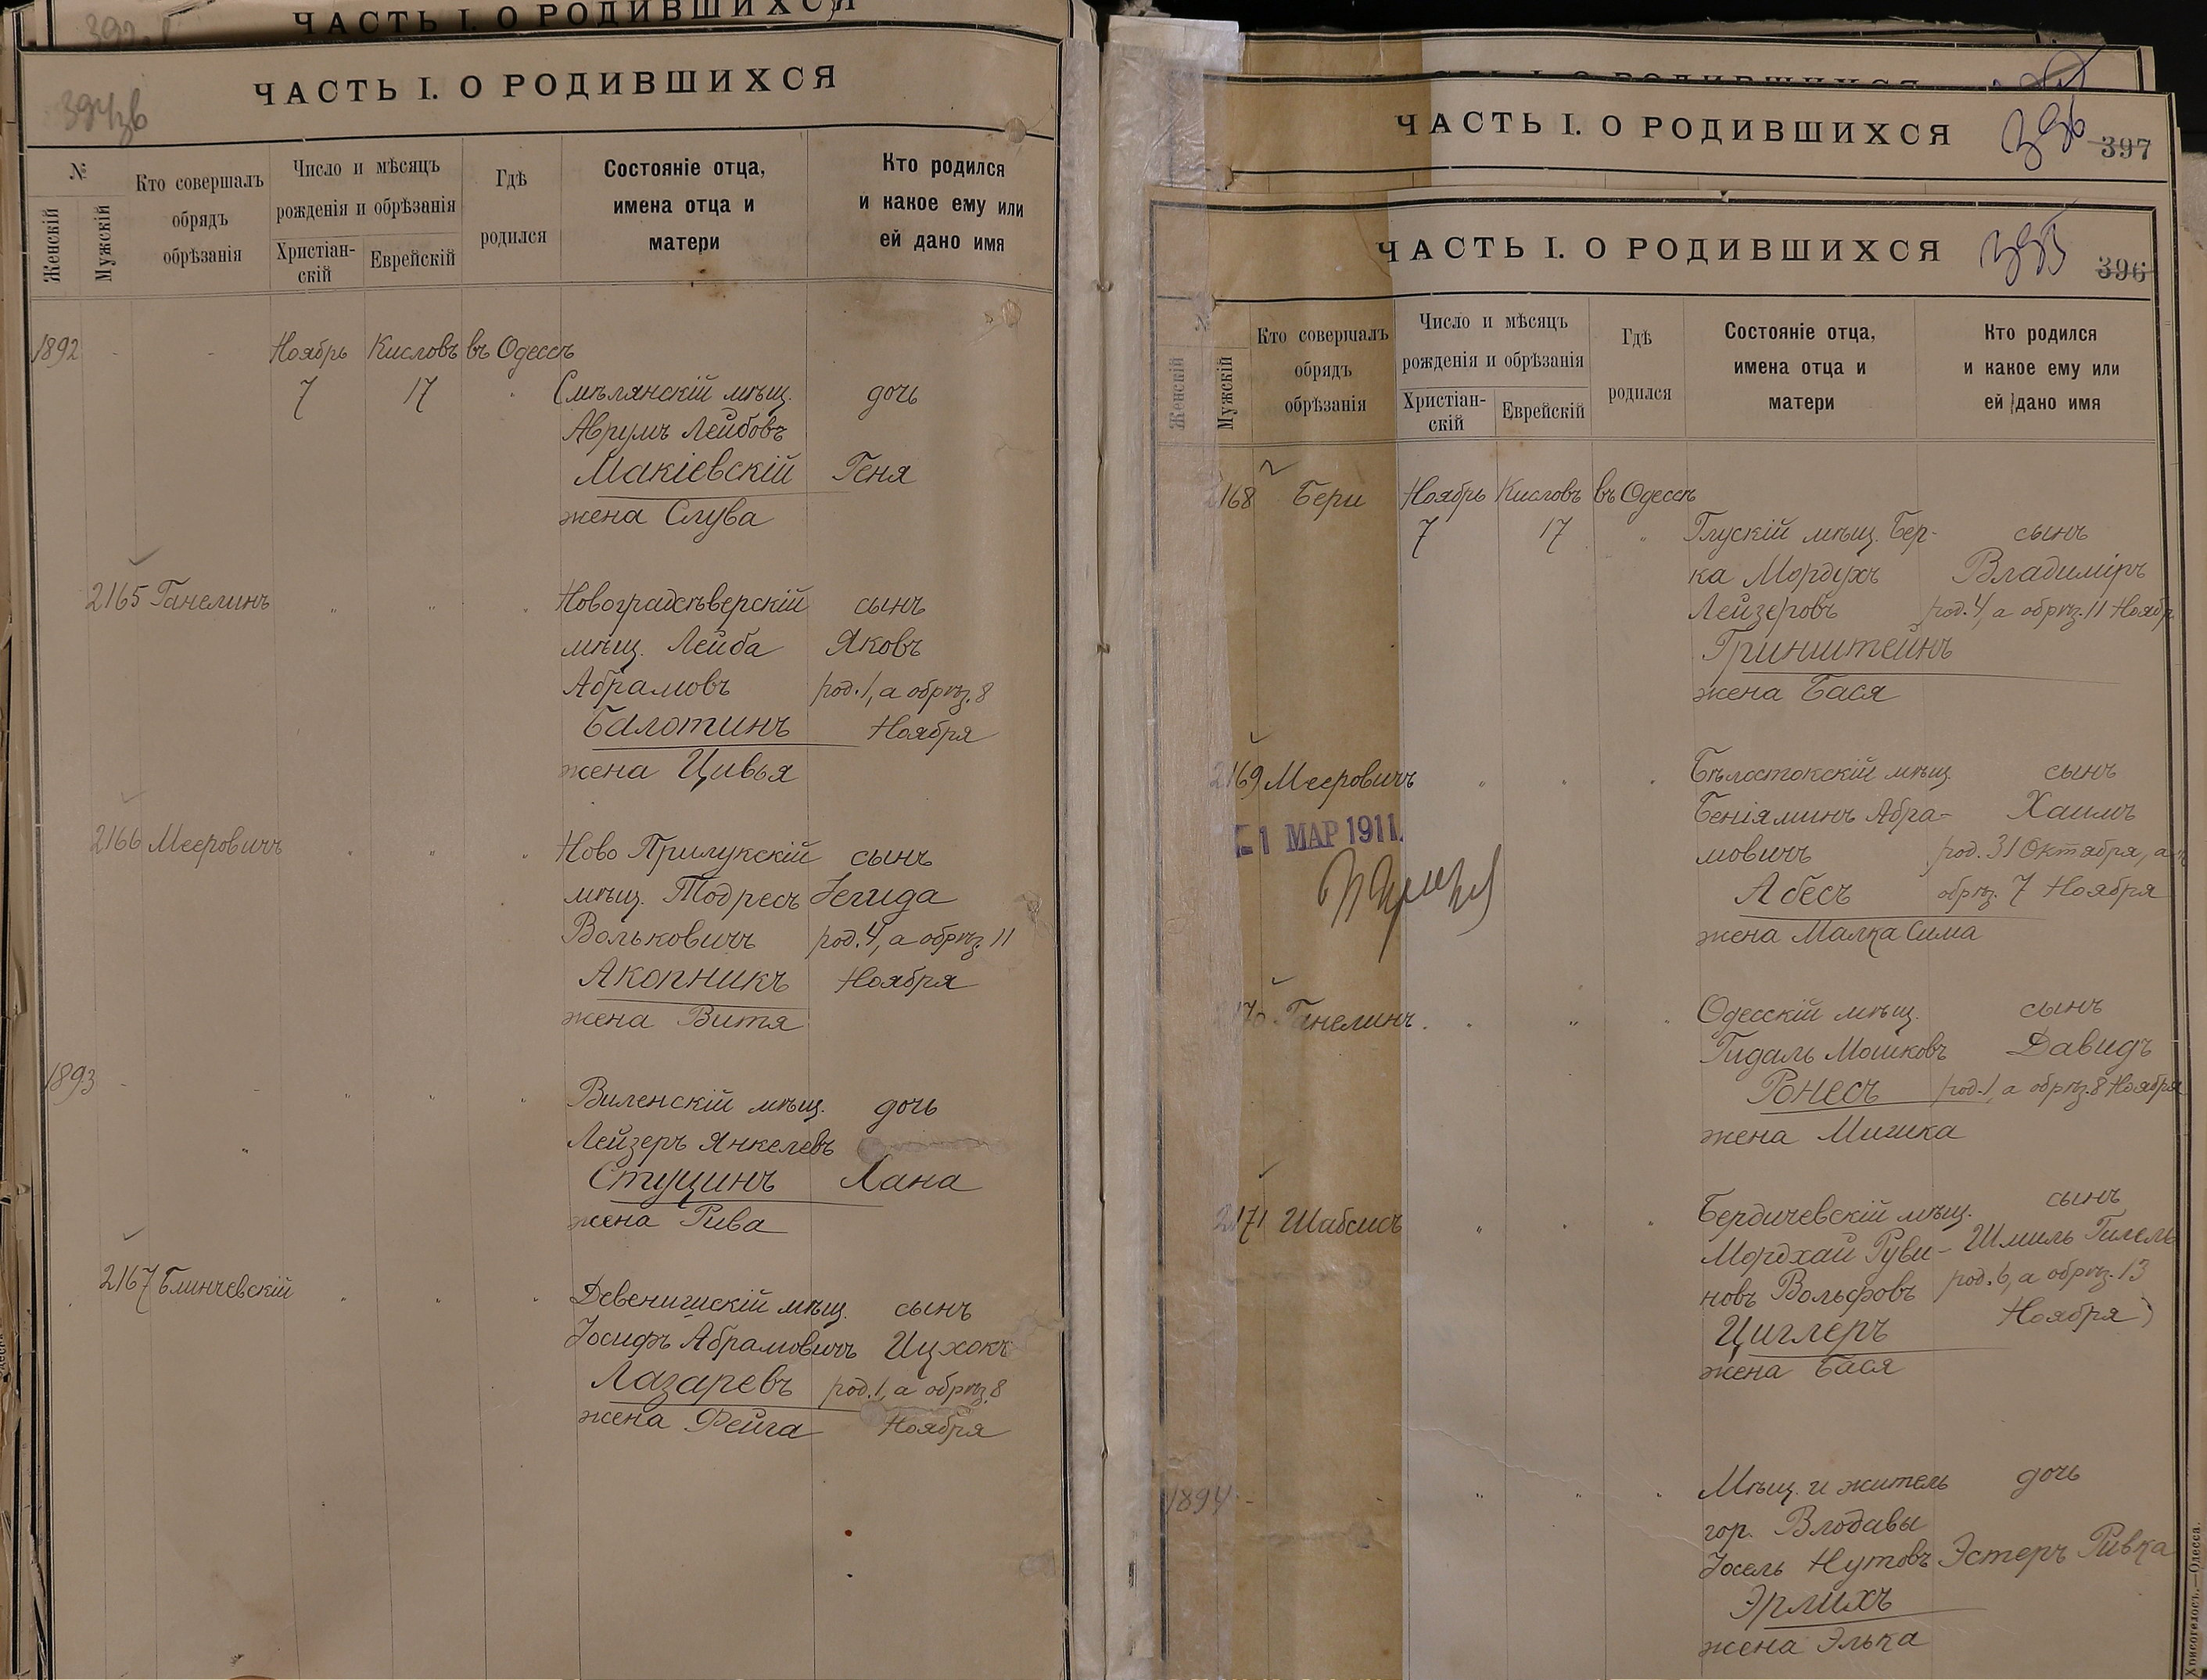 ЧАСТЬ I. О РОДИВШИХСЯ
ЧАСТЬ I. О РОДИВШИХСЯ
№
Женскій
Мужскій
Кто совершалъ
обрядъ
обрѣзанія
Число и мѣсяцъ
рожденія и обрѣзанія
Христіан-
скій
Еврейскій
Гдѣ
родился
Состояніе отца,
имена отца и
матери
Кто родился
и какое ему или
ей дано имя
1892 - - Ноябрь Кисловъ въ Одессѣ
7 17 " Смѣлянскій мѣщ. дочь
Аврумъ Лейбовъ
Макіевскій Геня
жена Слува
2165 Ганелинъ " " " Новоградсѣверскій сынъ
мѣщ. Лейба Яковъ
Абрамовъ род. 1, а обрѣз. 8
Балотинъ Ноября
жена Цивья
2166 Мееровичъ " " " Ново Прилукскій сынъ
мѣщ. Тодресъ Іегида
Вольковичъ род. 4, а обрѣз. 11
Акопникъ Ноября
жена Витя
1893 - - " " " Виленскій мѣщ. дочь
Лейзеръ Янкелевъ
Стуцинъ Хана
жена Рива
2167 Блинчевскій " " " Девенишскій мѣщ. сынъ
Іосифъ Абрамовичъ Ицхокъ
Лазаревъ род. 1, а обрѣз. 8
жена Фейга Ноября
ЧАСТЬ I. О РОДИВШИХСЯ 396 397
ЧАСТЬ I. О РОДИВШИХСЯ 395 396
№
Женскій
Мужскій
Кто совершалъ
обрядъ
обрѣзанія
Число и мѣсяцъ
рожденія и обрѣзанія
Христіан-
скій
Еврейскій
Гдѣ
родился
Состояніе отца,
имена отца и
матери
Кто родился
и какое ему или
ей дано имя
2168 Бери Ноябрь Кисловъ въ Одессѣ
7 17 " Глускій мѣщ. Бер- сынъ
ка Мордухъ Владиміръ
Лейзеровъ род. 4, а обрѣз. 11 Ноябр
Гринштейнъ
жена Бася
2169 Мееровичъ " " " Бѣлостокскій мѣщ. сынъ
Беніяминъ Абра- Хаимъ
1 МАР 1911.
мовичъ род. 31 Октября, а
Абесъ обрѣз. 7 Ноября
жена Малка Сима
2170 Ганелинъ. " " " Одесскій мѣщ. сынъ
Гидаль Мошковъ Давидъ
Ронесъ род. 1, а обрѣз. 8 Ноября
жена Мишка
2171 Шабсисъ " " " Бердичевскій мѣщ. сынъ
Мордхай Руви- Шмиль Гилель
новъ Вольфовъ род. 6, а обрѣз. 13
Циглеръ Ноября
жена Бася
1894 - " " " Мѣщ. и житель дочь
гор. Влодавы
Іосель Нутовъ Эстеръ Ривка
Эрлихъ
жена Элька
Хрисогелосъ.—Одесса.